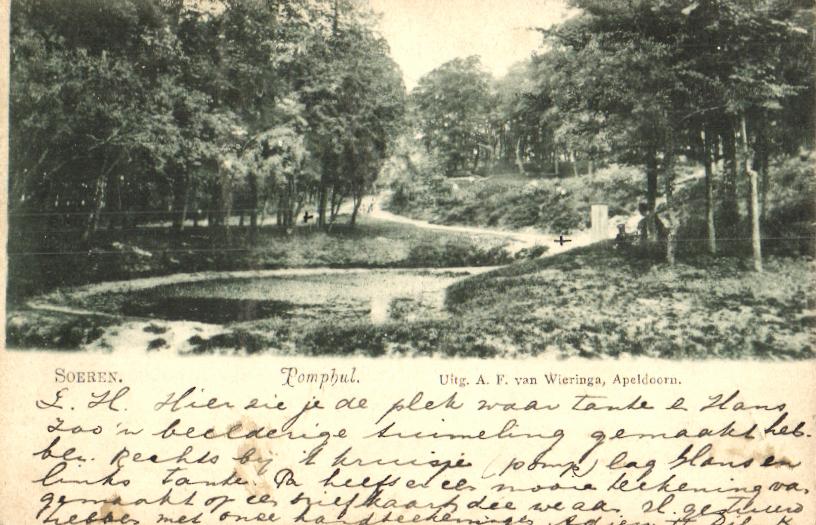 SOEREN. Pomphul. Uitg. A. F. van Wieringa, Apeldoorn.
L. H. Hier zie je de plek waar tante en Hans
zoo'n beelderige tuimeling gemaakt heb-
ben. Rechts bij 't kruisje (pomp) lag Hans en
links tante. Pa heeft er een mooie teekening van
gemaakt op een briefkaart die we aan H. gestuurd
hebben met onze handteekeningen